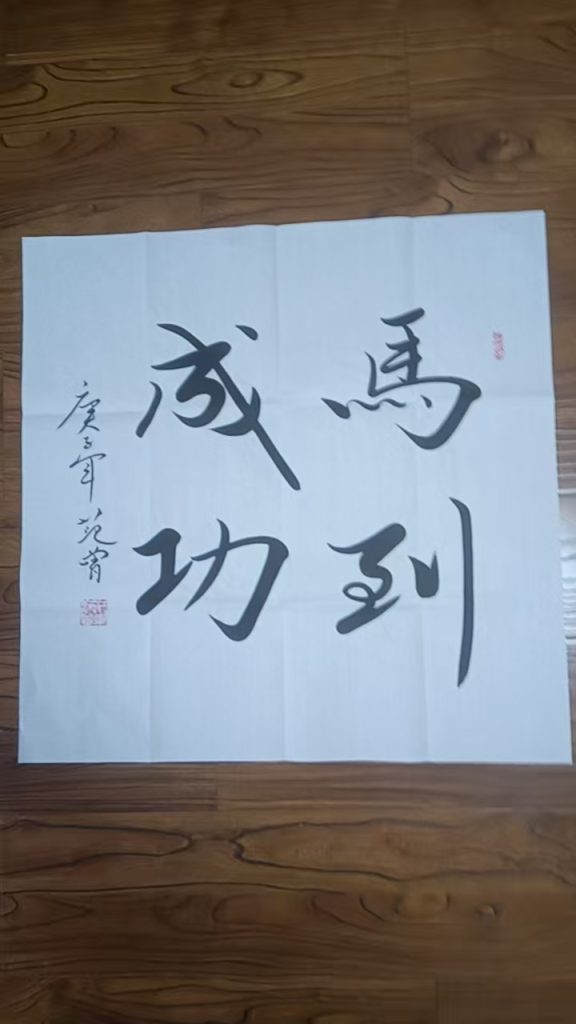 馬到
成功
庚子年范曾